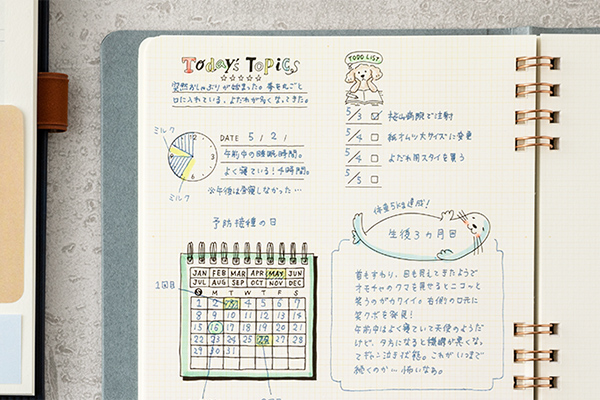 Today's Topics
突然おしゃぶりが始まった。手を丸ごと
口に入れている、よだれが多くなってきた。
ミルク
12
3
6
9
ミルク
DATE 5/2/
午前中の睡眠4時間。
よく寝ている！4時間。
午後は昼寝しなかった…
予防接種の日
JAN FEB MAR APR MAY JUN
JUL AUG SEP OCT NOV DEC
S M T W T F S
1 2 3 4 5 6 7
8 9 10 11 12 13 14
15 16 17 18 19 20 21
22 23 24 25 26 27 28
29 30 31
1回目
TODO LIST
5/3 桜山病院で注射
5/4 紙オムツ大サイズに変更
5/4 よだれ用スタイを買う
5/5
体重5kg達成！
生後3ヵ月目
首もすわり、目も見えてきたようで
オモチャのクマを見せるとニコーッと
笑うのがカワイイ。右側の口元に
笑クボを発見！
午前中はよく寝ていて天使のようだ
けど、夕方になると機嫌が悪くなっ
てギャン泣き状態。これがいつまで
続くのか…怖いなぁ。